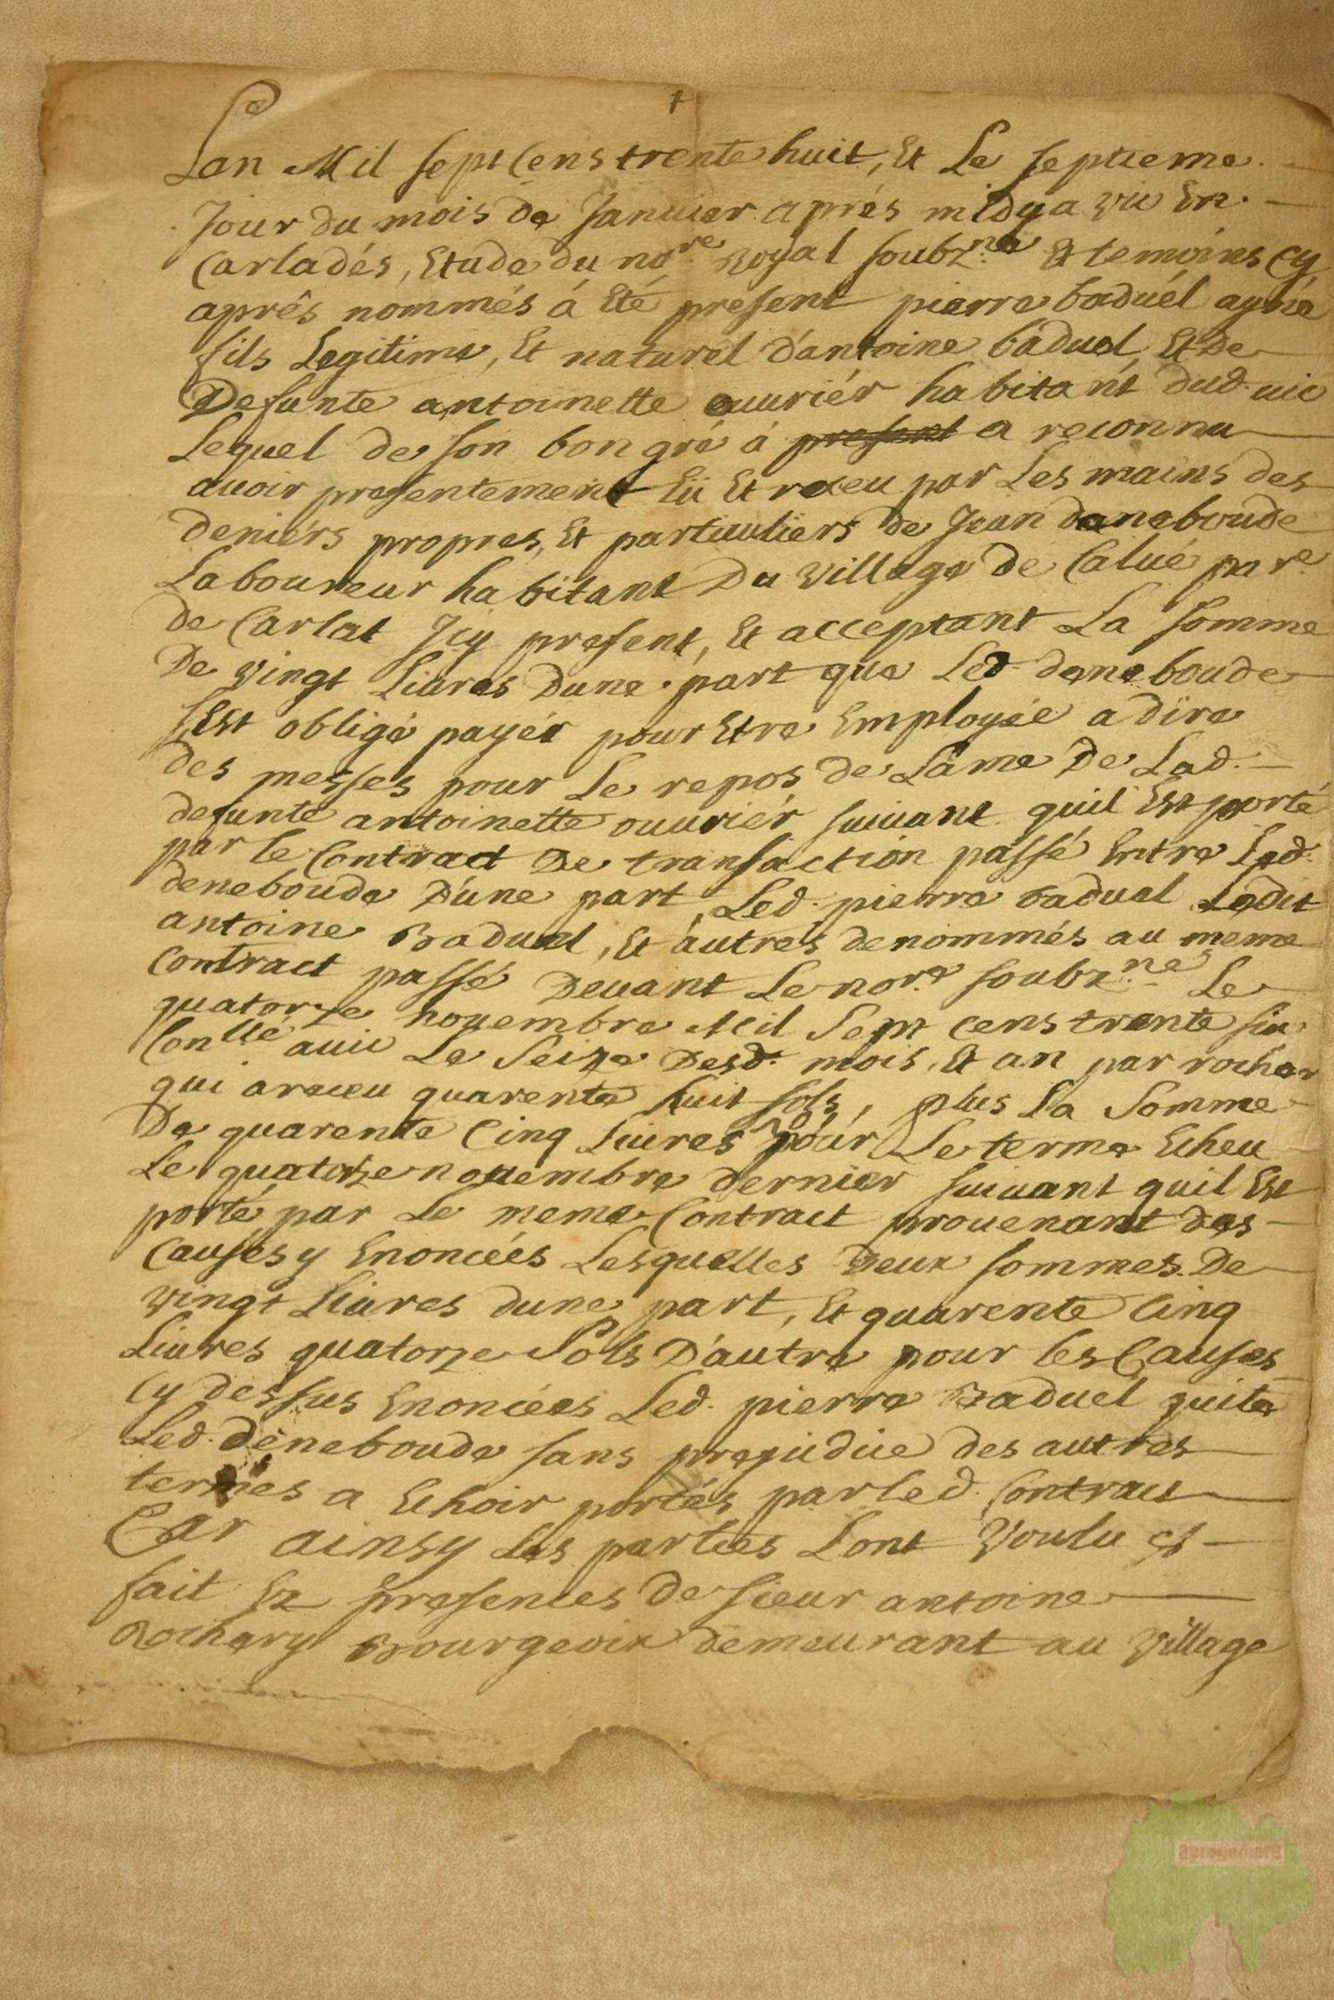 Lan Mil sept Cens trente huit, Et Le septieme
Jour du mois de Janvier après midy a vic En
Carladés, Etude du no.re Royal soubz.né Et temoins cy
aprês nommés á Eté present pierre baduél ayné
fils Legitime, Et naturel d'antoine baduel Et De
Defunte antoinette ouuriér habitant dud. uic
Lequel de son bon gré á present a reconnu
auoir presentement Eü Et receu par Les mains des
deniérs propres, Et particuliers de Jean deneboude
Laboureur habitant Du village de Calué par.e
de Carlat Jcy present, Et acceptant La somme
De vingt Liures Dune part que Led. deneboude
sest obligé payér pour Etre Employée a dire
des messes pour Le repos de Lame De Lad.
defunte antoinette ouuriér suiuant quil Est porté
par le Contract De transaction passé Entre Led.
deneboude D'une part, Led. pierre baduel Ledit
antoine Baduel, Et autres denommés au meme
Contract passé Deuant Le no.re soubz.né Le
quatorze nouembre Mil Sept cens trente six
Conllé auic Le Seize Desd. mois, Et an par rocher
qui areceu quarente huit sols, plus La Somme
De quarente Cinq Liures pour Le terme Echeu
Le quatorze nouembre dernier suiuant quil Est
porté par Le meme Contract prouenant des
Causes y Enoncées Lesquelles Deux sommes De
vingt Liures dune part, Et quarente Cinq
Liures quatorze Sols D'autre pour les Causes
Cy dessus Enoncées Led. pierre Baduel quite
Led. deneboude sans prejudice des autres
termes a Echoir portés par led. Contract
Car ainsy Les parties Lont Voulu Et
fait Ez presences de sieur antoine
Rochery Bourgeoix demeurant au village
aprogemere